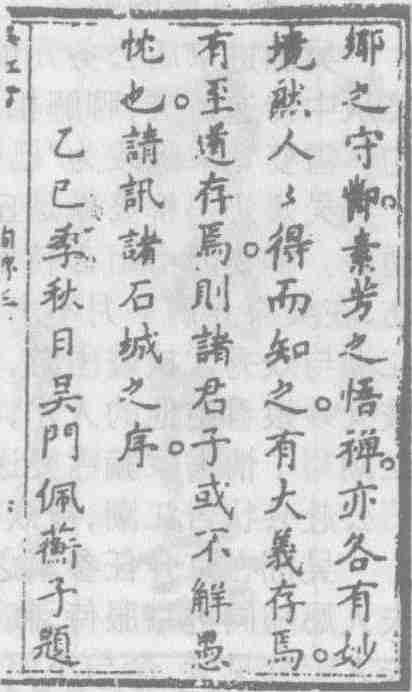 鄉之守鄭。素芳之悟禪。亦各有妙
境然人〻得而知之。有大義存焉。
有至道存焉。則諸君子或不解愚
忱也。請訊諸石城之序。
乙巳季秋日吳門佩蘅子題